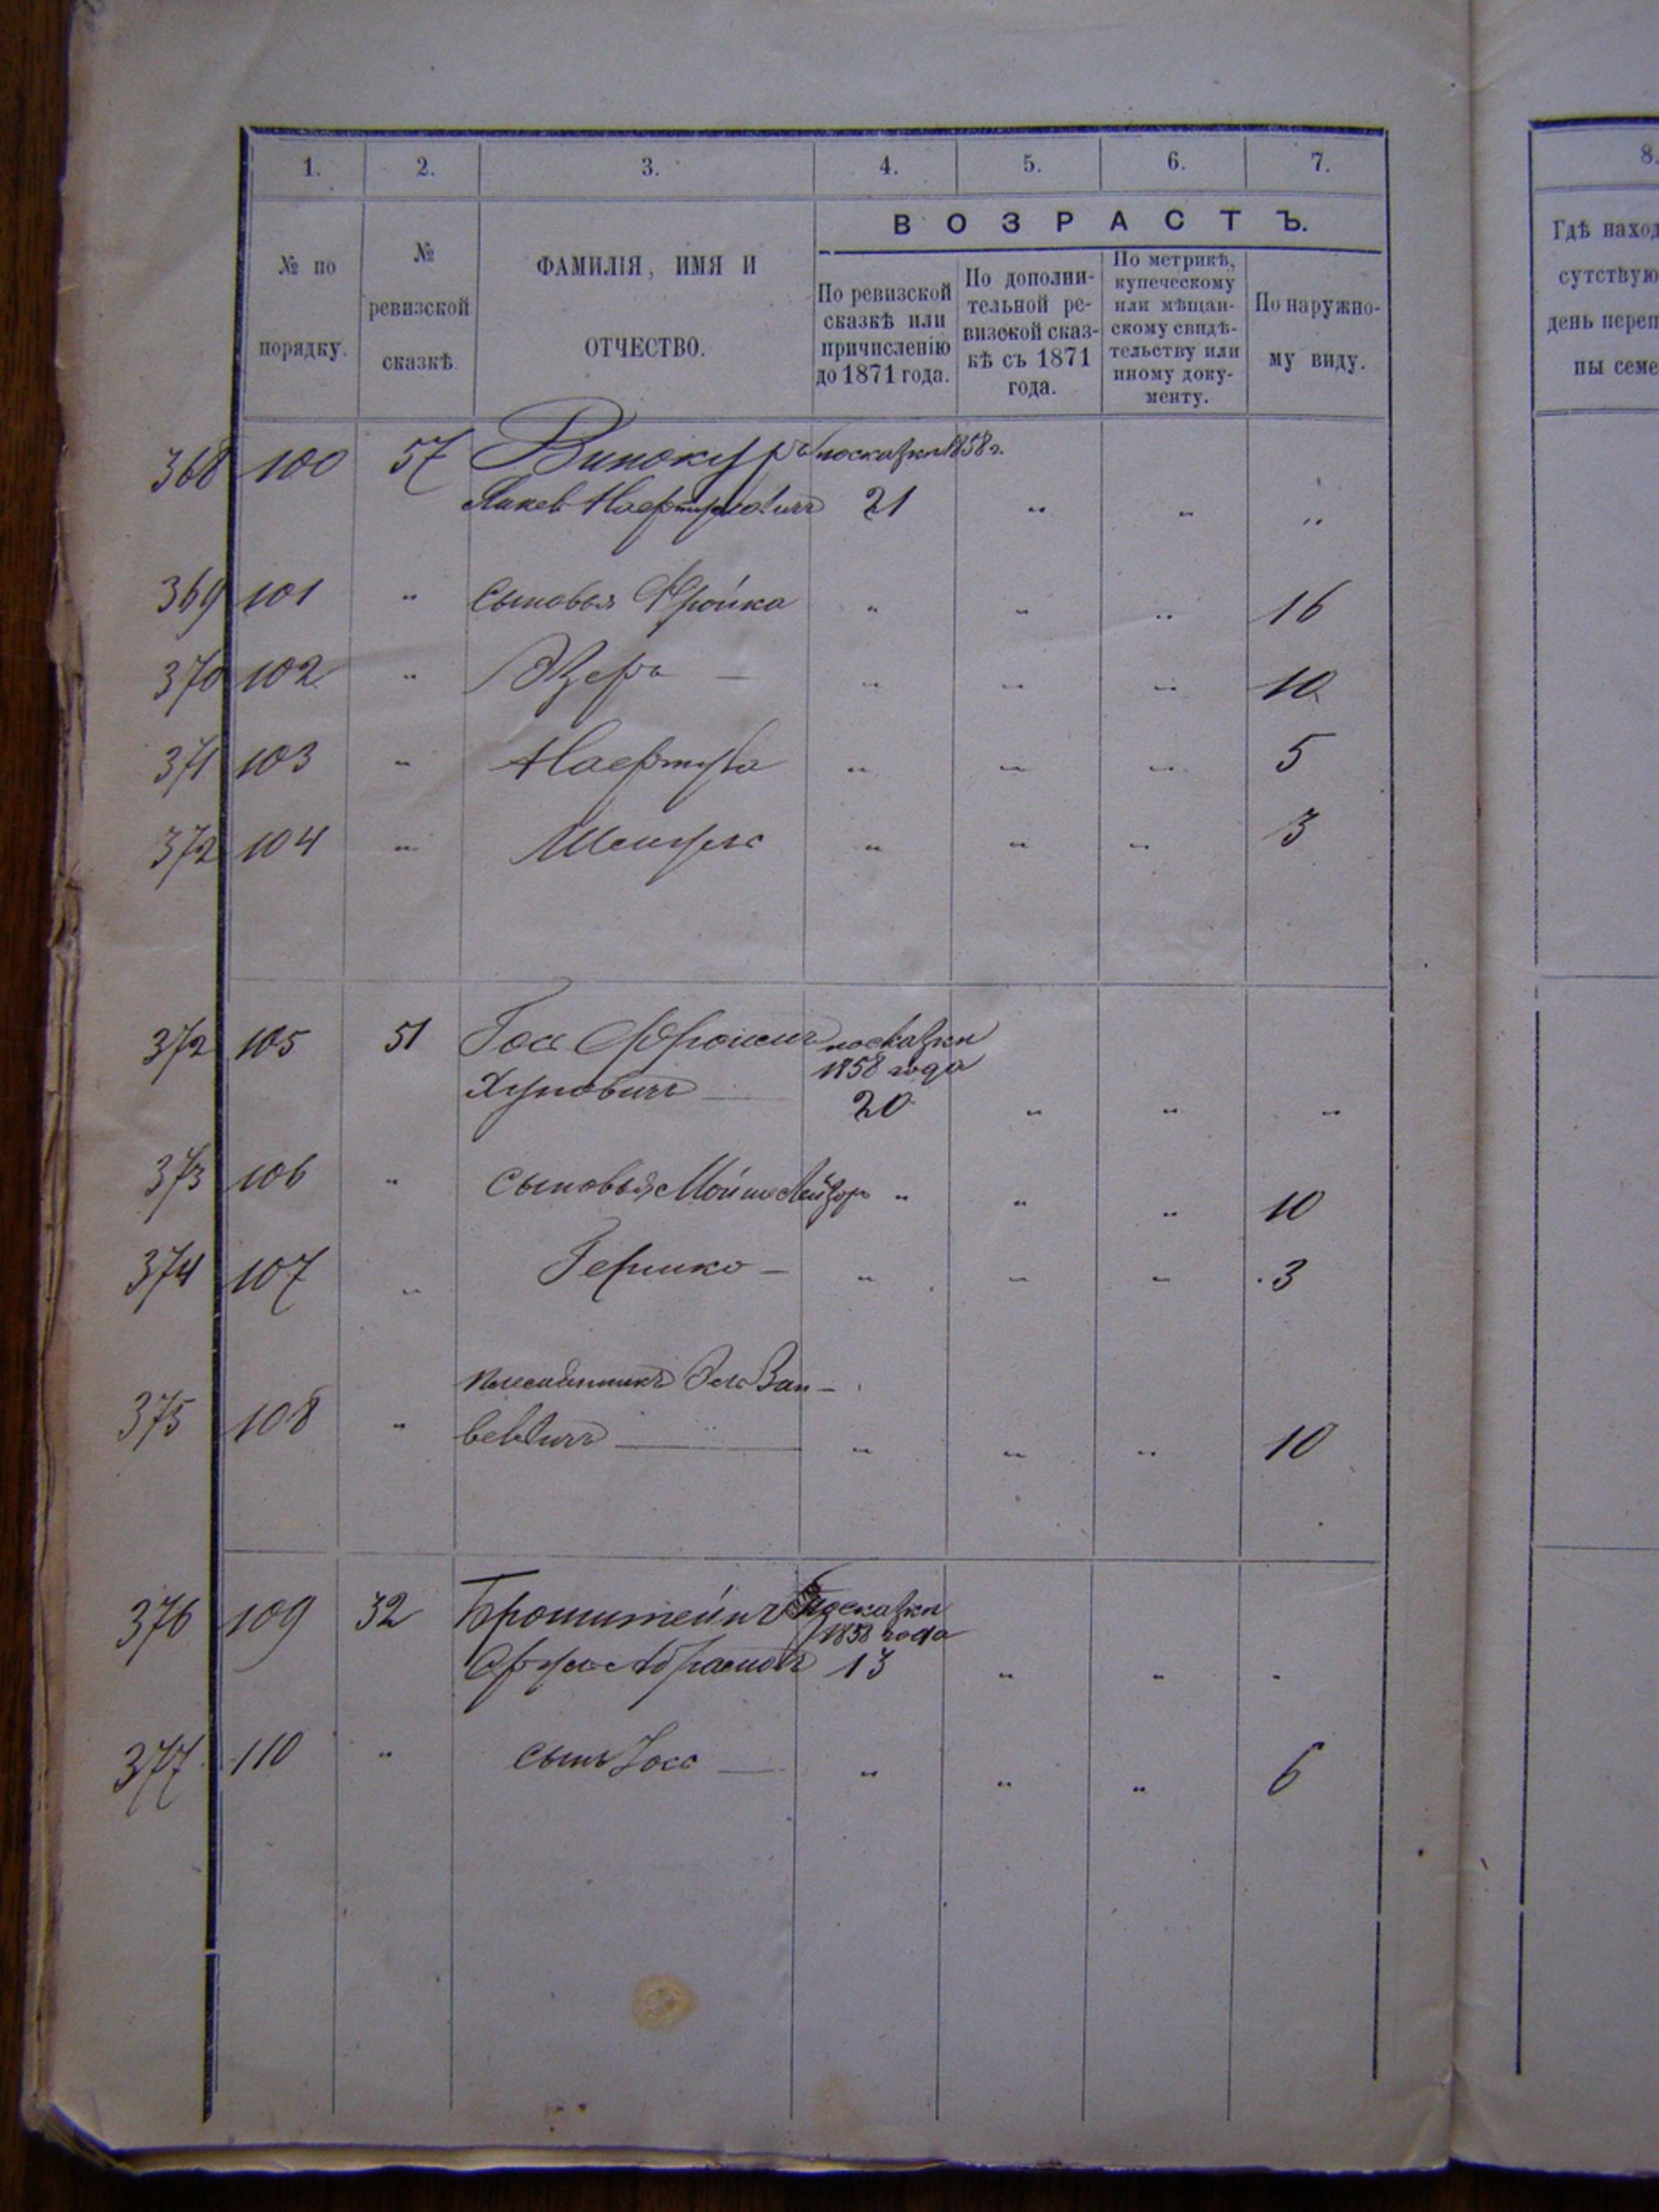 1. 2. 3. 4. 5. 6. 7. 8.
№ по порядку.
№ ревизской сказкѣ.
ФАМИЛІЯ, ИМЯ И ОТЧЕСТВО.
ВОЗРАСТЪ.
По ревизской сказкѣ или причисленію до 1871 года.
По дополнительной ревизской сказкѣ съ 1871 года.
По метрикѣ, купеческому или мѣщанскому свидѣтельству или иному документу.
По наружному виду.
Гдѣ наход
сутствую
день переп
ны семе
368 100 57 Винокуръ по сказкѣ 1858 г.
21 " " "
369 101 " сыновья Фройка " " " 16
370 102 " Эзеръ — " " " 10
371 103 " Нафтула " " " 5
372 104 " Шмуль " " " 3
372 105 51 Гох Фроим по сказки
1858 года
20 " " "
373 106 " сыновья Мойше Лейзоръ " " " 10
374 107 " Гершко — " " " 3
племянникъ
375 108 " " " " 10
376 109 32 Бронштейнъ по сказки
1858 года
13 " " "
377 110 " сынъ Іосъ — " " " 6